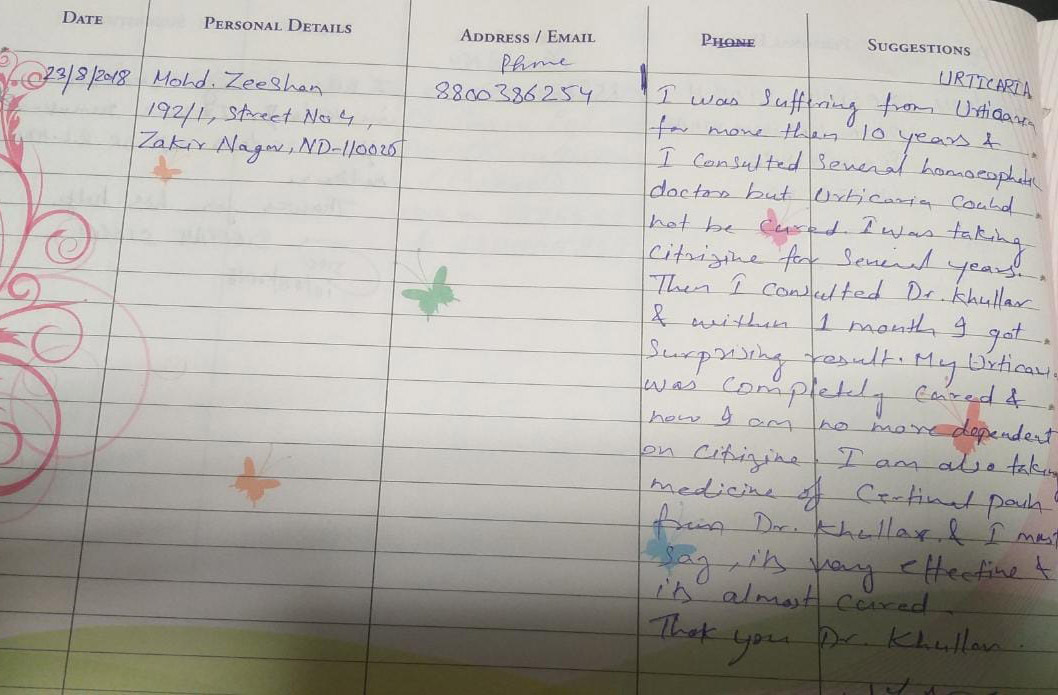 DATE
PERSONAL DETAILS
ADDRESS / EMAIL
PHONE
SUGGESTIONS
Phone
URTICARIA
23/8/2018
Mohd. Zeeshan
192/1, Street No 4,
Zakir Nagar, ND-110025
8800386254
I was Suffering from Urticaria
for more then 10 years &
I Consulted Several homoeophatic
doctors but Urticaria Could
not be Cured. I was taking
Citrizine for Several years.
Then I Consulted Dr. Khullar
& within 1 month I got
Surprising result. My Urticari
was Completely Cured &
now I am no more dependent
on Citrizine. I am also takin
medicine of
from Dr. Khullar. & I must
Say, its very effective &
its almost Cured.
Thak you Dr. Khullar.